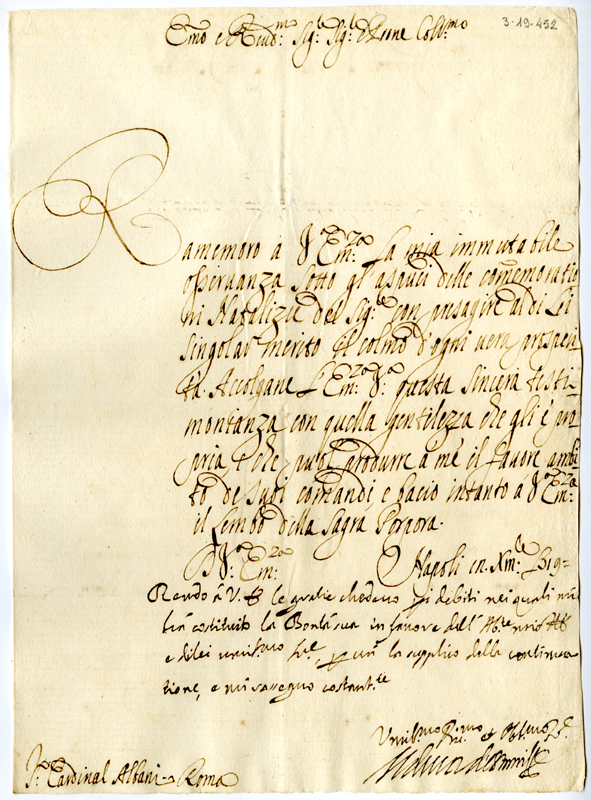 3-19-452
Emo e Rmo Sig.r Sig.r Prone Coll.mo
Ramemoro à V.a Em.za la mia immutabile
osservanza sotto gl'aspici delle comemoratio
ni Natalizie del Sig.re con presagire al di Lei
singolar merito il colmo d'ogni vera prosperi
tà. Accolgane l'Em.za V.a questa sincera testi
monianza con quella gentilezza che gli è pro
pria, e che può produrre a me il favore ambi
to de suoi comandi, e bacio intanto a V.a Em.za
il Lembo della Sagra Porpora.
D V.a Em.za Napoli
Rendo à V. E. le gratie che devo pi debiti nei quali mi
hà costituito la Bontà sua in favore dell'
e di lei la supplico della continua
tione, e mi rassegno costant.te
S.r Cardinal Albani - Roma